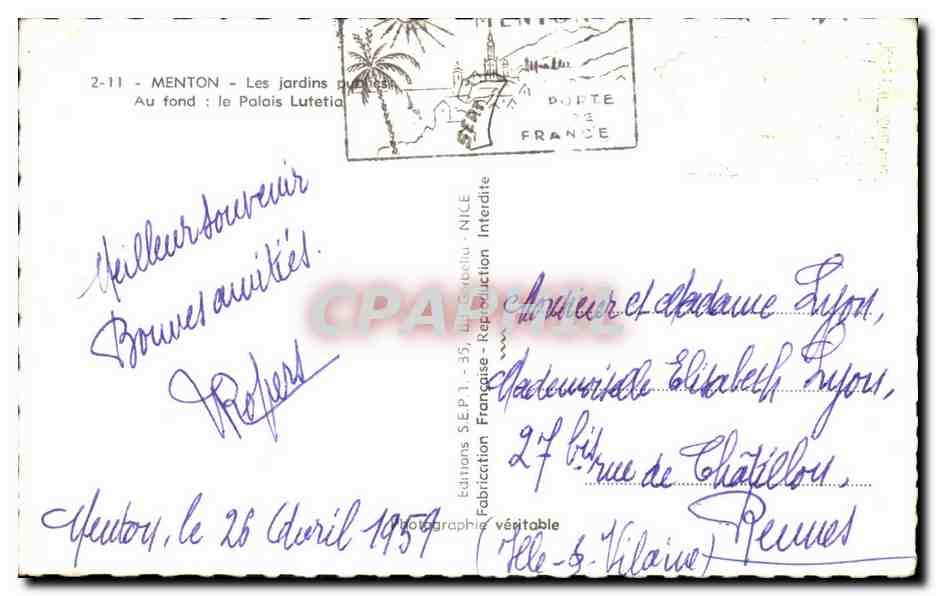 2-11 - MENTON - Les jardins publics
Au fond : le Palais Lutetia
MENTON
PORTE
DE
FRANCE
Meilleur souvenir
Bonnes amitiés.
Menton, le 26 Avril 1959
Editions S.E.P.T. - 35, - NICE
Fabrication Française - Reproduction Interdite
Photographie véritable
CPAPHIL
Monsieur et Madame Lyon,
Mademoiselle Elisabeth Lyon,
27 bis rue de Châtillon,
Rennes
(Ille-&-Vilaine)